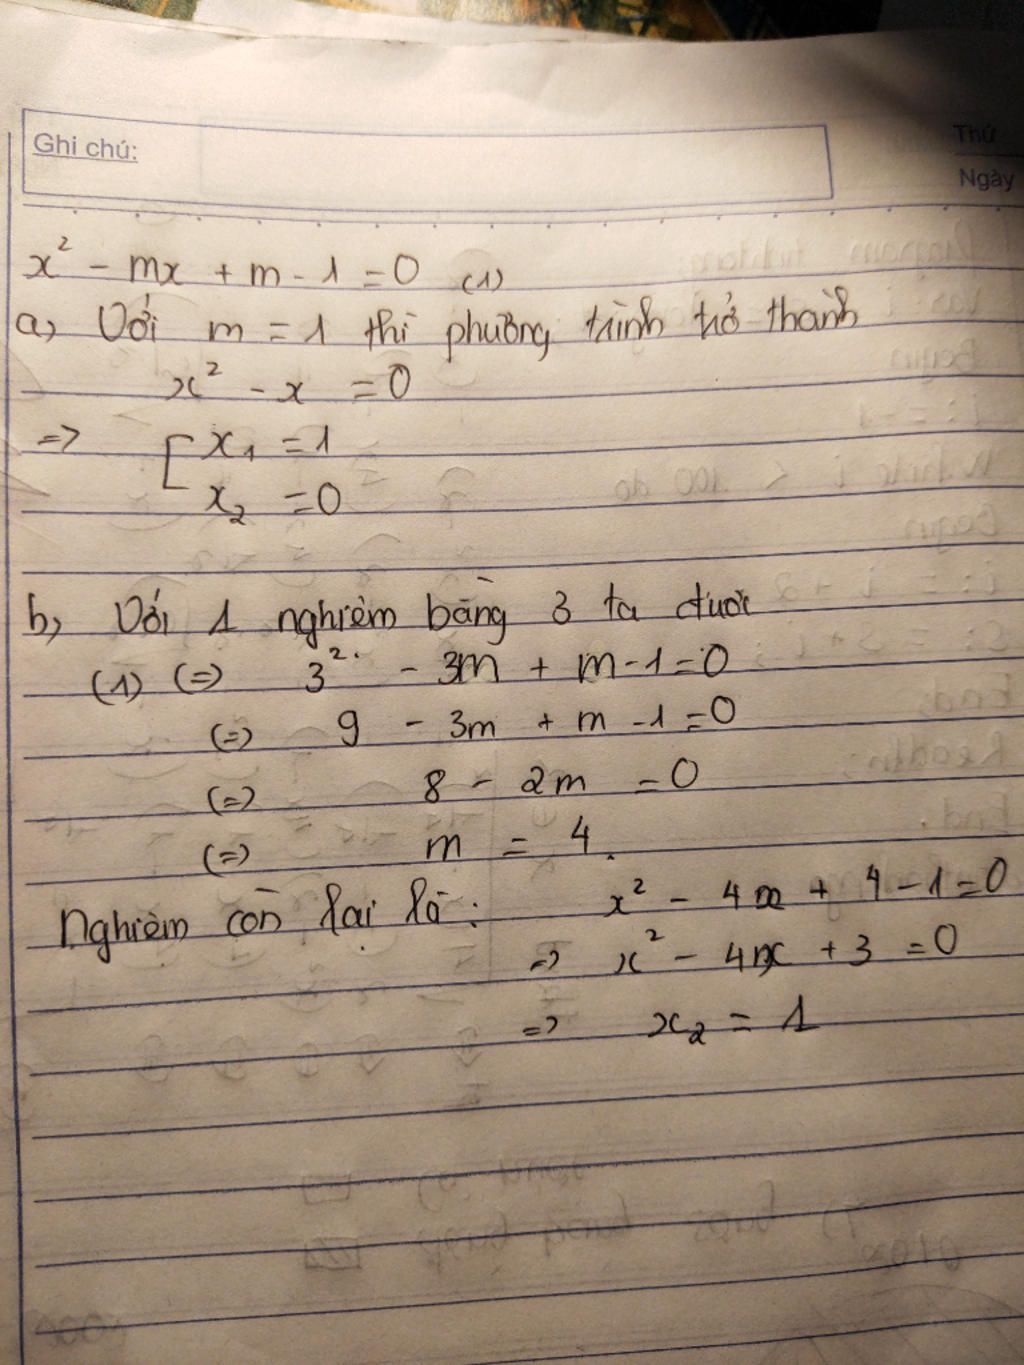 Ghi chú:
Thứ
Ngày
x² - mx + m - 1 = 0 (1)
a, Với m = 1 thì phương trình trở thành
x² - x = 0
=> [ x₁ = 1
x₂ = 0
b, Với 1 nghiệm bằng 3 ta được
(1) (=) 3² - 3m + m - 1 = 0
(=) 9 - 3m + m - 1 = 0
(=) 8 - 2m = 0
(=) m = 4.
Nghiệm còn lại là: x² - 4x + 4 - 1 = 0
=> x² - 4x + 3 = 0
=> x₂ = 1